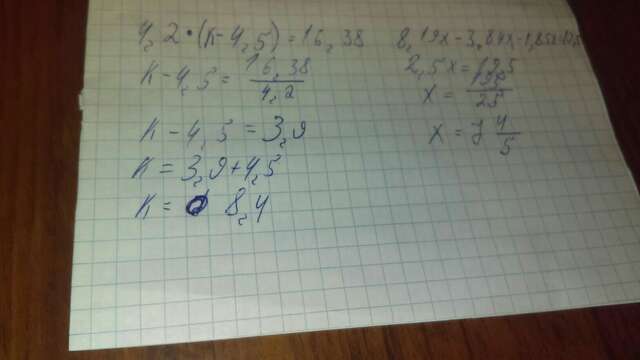 4,2·(к-4,5)=16,38
к-4,5=16,38/4,2
к-4,5=3,9
к=3,9+4,5
к= 8,4
8,19x-3,84x-1,85x=19,5
2,5x=19,5
x=195/25
x=7 4/5